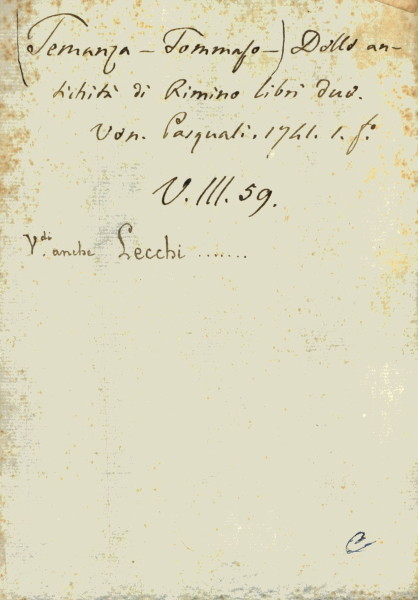 (Temanza - Tommaso -) Delle an-
tichità di Rimino libri due.
Ven. Pasquali. 1741. 1. fº.
V. III. 59.
V.di anche Lecchi .......